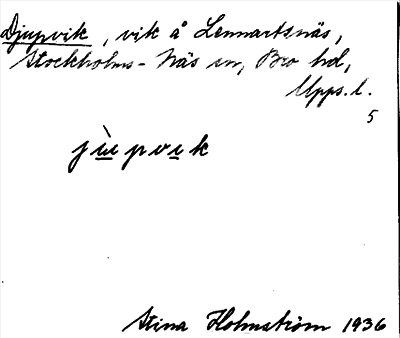 Djupvik, vik å Lennartsnäs,
Stockholms-Näs sn, Bro hd,
Upps. l.
5
jùpvik
Stina Holmström 1936